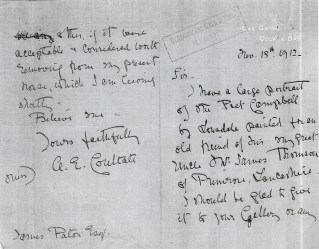 Nov. 15th 1912.
Sir.
I have a large portrait
of the Poet Campbell
by Lonsdale painted for an
old friend of his, my great
Uncle Mr James Thomson
of Primrose, Lancashire.
I should be glad to give
it to your Gallery or any
other, if it were
acceptable & considered worth
removing from my present
house, which I am leaving
shortly.
Believe me
Yours faithfully
A. E. Coultate
(Miss)
James Paton Esq.